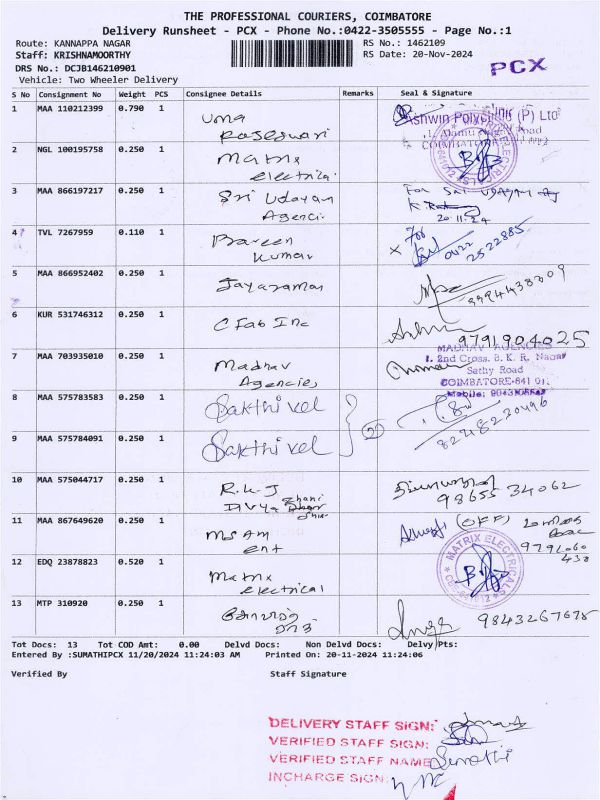 THE PROFESSIONAL COURIERS, COIMBATORE
Delivery Runsheet - PCX - Phone No.:0422-3505555 - Page No.:1
Route: KANNAPPA NAGAR RS No.: 1462109
Staff: KRISHNAMOORTHY RS Date: 20-Nov-2024
DRS No.: DCJB146210901 PCX
Vehicle: Two Wheeler Delivery
S No Consignment No Weight PCS Consignee Details Remarks Seal & Signature
1 MAA 110212399 0.790 1 Uma
Rajeswari
Ashwin Polyclinic (P) Ltd
COIMBATORE
2 NGL 100195758 0.250 1 Matrix
electrical
3 MAA 866197217 0.250 1 Sri Udayan
Agenci.
For Sri UDAYAN
20.11.24
4 TVL 7267959 0.110 1 Praveen
kumar
For
0422
2522885
5 MAA 866952402 0.250 1 Jayaraman
9994438009
6 KUR 531746312 0.250 1 C Fab Inc
9791904025
7 MAA 703935010 0.250 1 Madhav
Agencies
MADHAV AGENCIES
1. 2nd Cross. B. K. R. Nagar
Sathy Road
COIMBATORE-641 01
Mobile:
8 MAA 575783583 0.250 1 Sakthi vel
9 MAA 575784091 0.250 1 Sakthi vel
2
8248220496
10 MAA 575044717 0.250 1 R.K.J
Divya
98655 34062
11 MAA 867649620 0.250 1 MSAM
ent
(OFF)
9791060
430
12 EDQ 23878823 0.520 1 Matrix
electrical
MATRIX ELECTRICALS
13 MTP 310920 0.250 1
9843267675
Tot Docs: 13 Tot COD Amt: 0.00 Delvd Docs: Non Delvd Docs: Delvy Pts:
Entered By :SUMATHIPCX 11/20/2024 11:24:03 AM Printed On: 20-11-2024 11:24:06
Verified By Staff Signature
DELIVERY STAFF SIGN:
VERIFIED STAFF SIGN:
VERIFIED STAFF NAME Sumathi
INCHARGE SIGN: